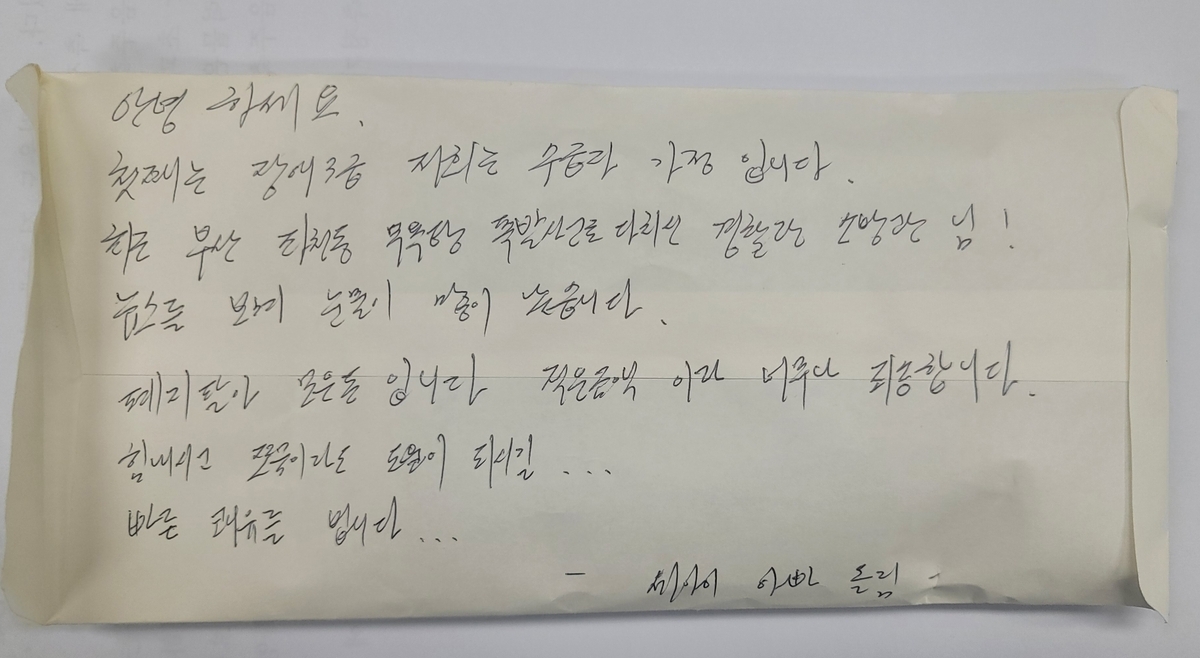 안녕 하세요.
첫째는 장애3급 저희는 수급자 가정 입니다.
최근 부산 좌천동 목욕탕 폭발사고로 다치신 경찰관 소방관 님!
뉴스를 보며 눈물이 많이 났습니다.
폐지팔아 모은돈 입니다 적은금액 이라 너무나 죄송합니다.
힘내시고 조금이라도 도움이 되시길 ...
빠른 쾌유를 빕니다 ...
- 세아이 아빠 올림 -